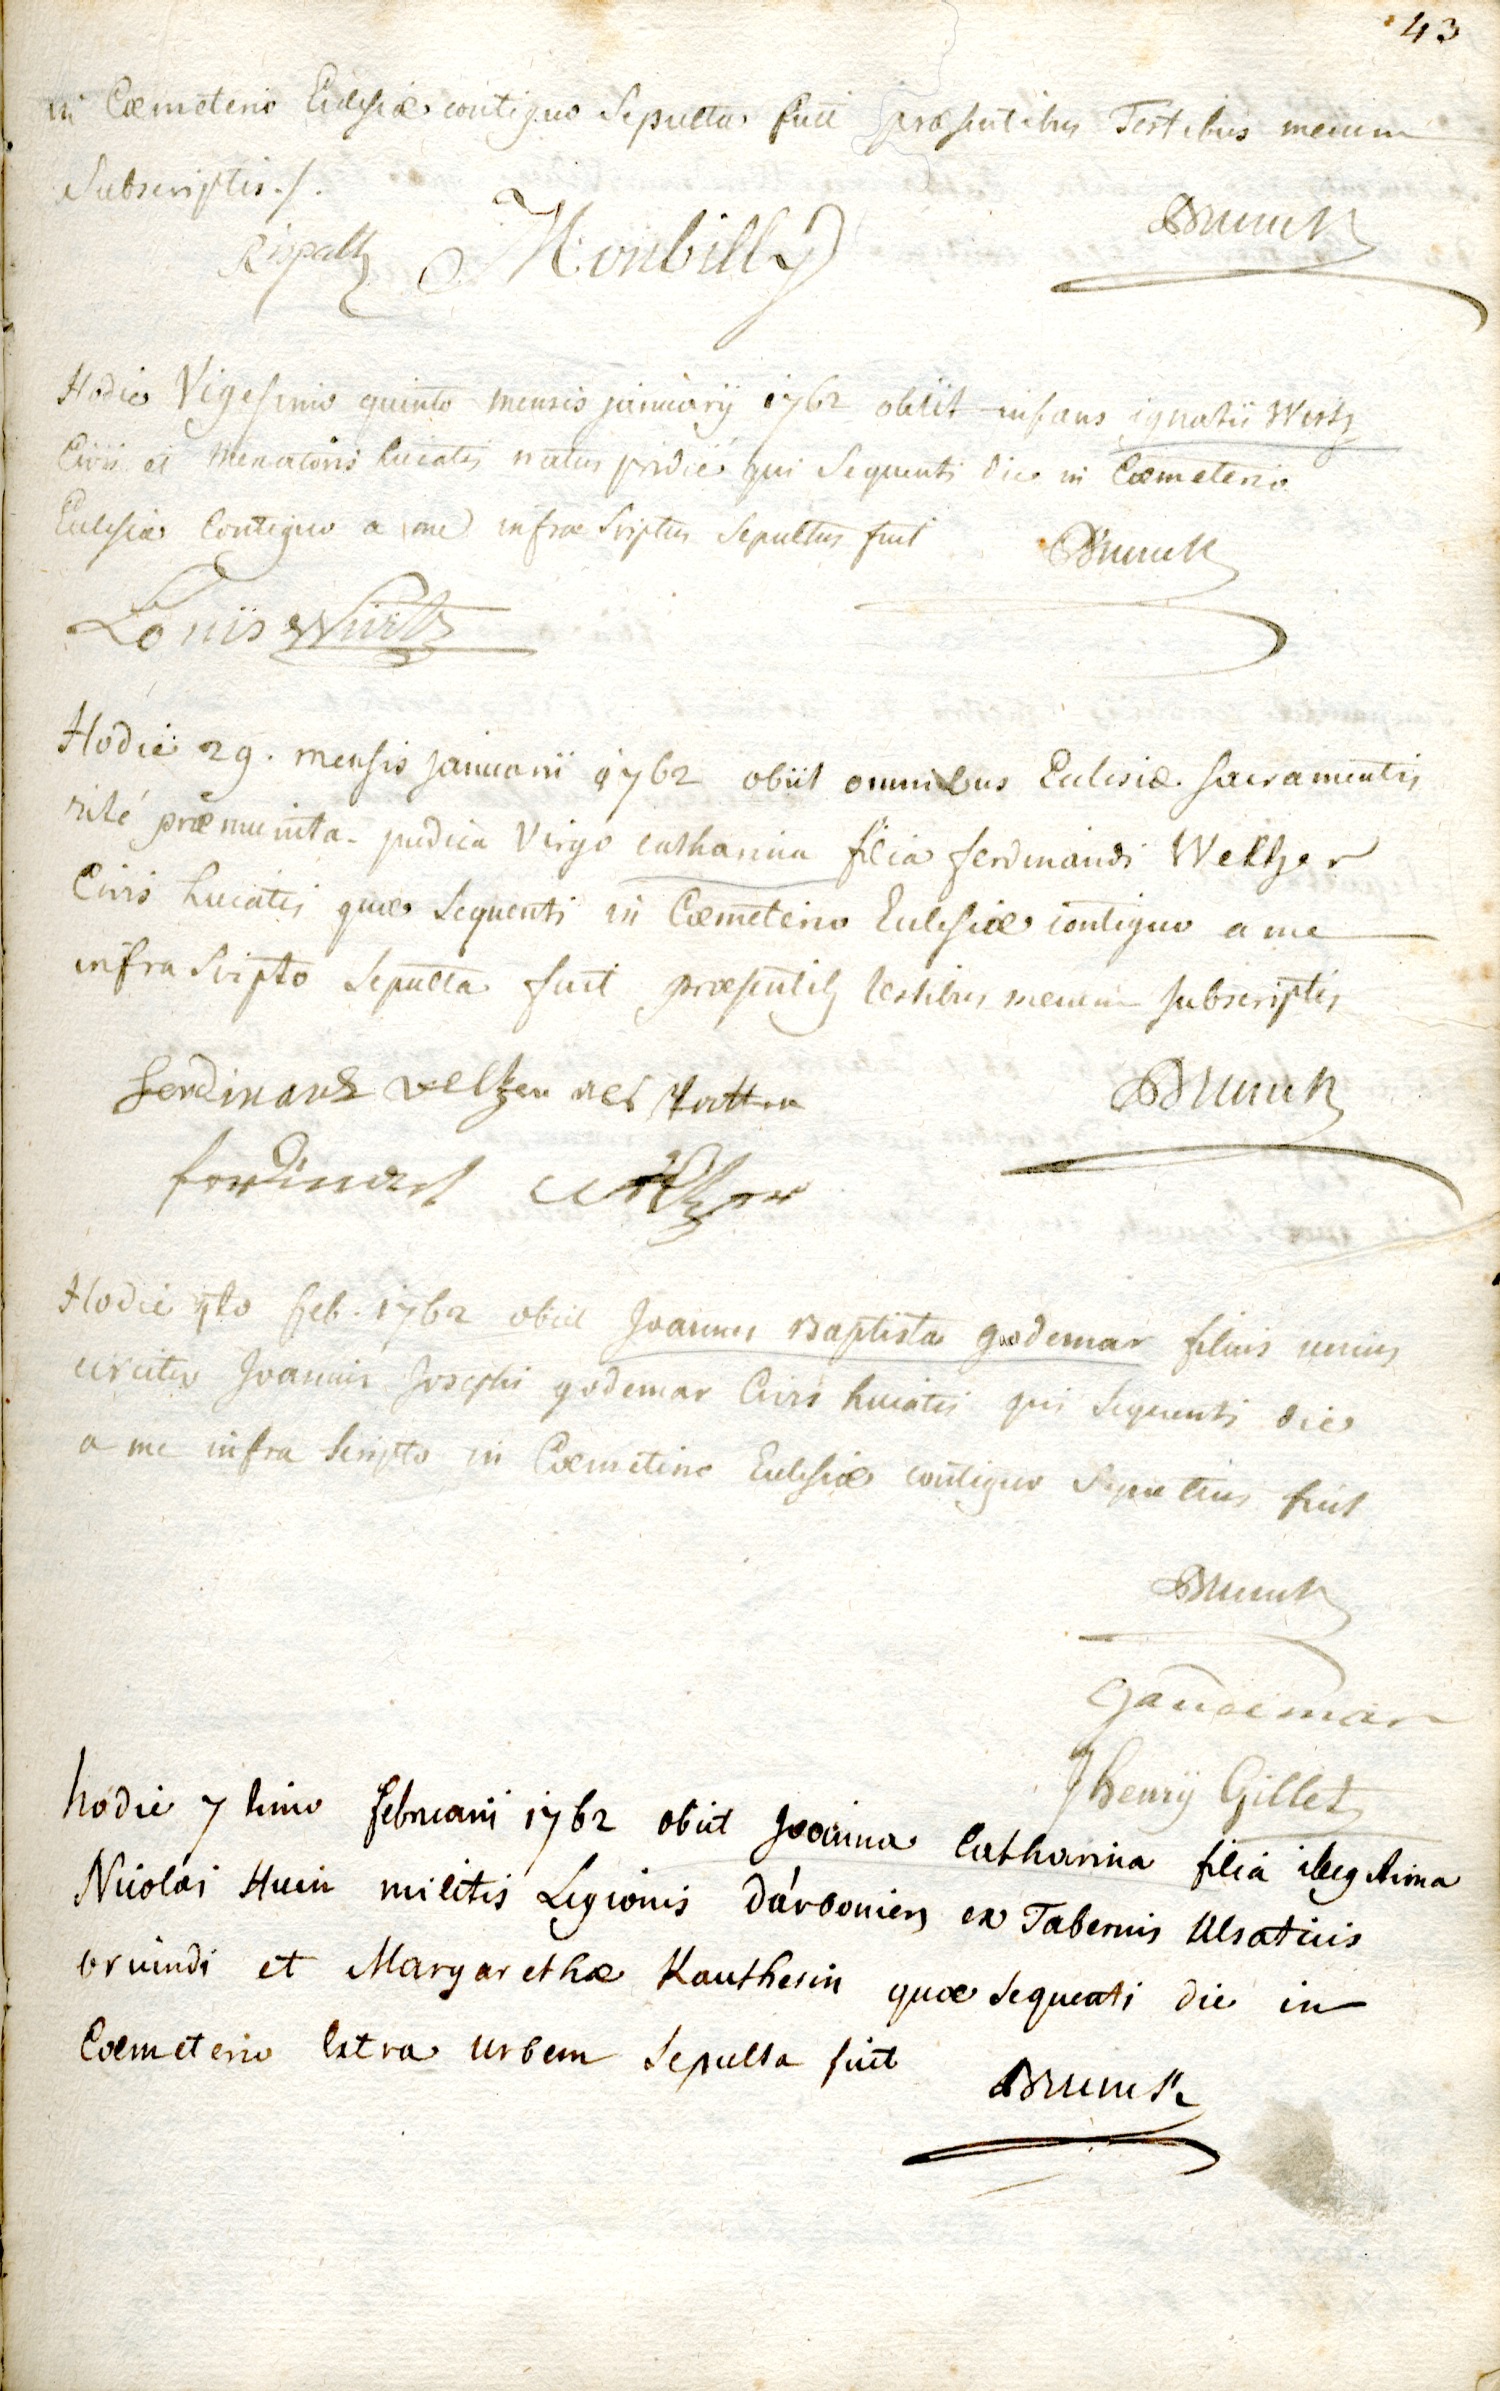 43
in Cœmeterio Eclesiæ contiguo Sepulta fuit præsentibus Testibus mecum
Subscriptis ./.
Rispalt Monbilly Brunck
Hodie Vigesimo quinto mensis january 1762 obiit infans ignatii Wirtz
Civis et Mercatoris huiatis natus pridie qui Sequenti die in Cœmeterio
Eclesiæ Contiguo a me infra Sriptus Sepultus fuit Brunck
Louis Würtz
Hodie 29. mensis januarii 1762 obiit omnibus Eclesiæ Sacramentis
rité præmunita pudica Virgo catharina filia ferdinandi Weltzer
Civis huiatis quæ Sequenti in Cœmeterio Eclesiæ contiguo a me
infra Sripto Sepulta fuit præsentib testibus mecum subscriptis
ferdinand weltzer Brunck
ferdinant weltzer
Hodie feb. 1762 obiit Joannes Baptista godemar filius
circiter Joannis Josephi godemar Civis huiatis qui Sequenti die
a me infra Scripto in Cœmeterio Eclesiæ contiguo Sepultus fuit
Brunck
Gaudemar
Jhenrÿ Gillet
hodie 7 timo februarii 1762 obiit Joanna Catharina filia illegitima
Nicolai Huin militis Legionis dárboniens ex Tabernis Alsaticis
oriundi et Margarethæ Kautherin quæ sequenti die in
Cœmeterio Extra urbem Sepulta fuit Brunck